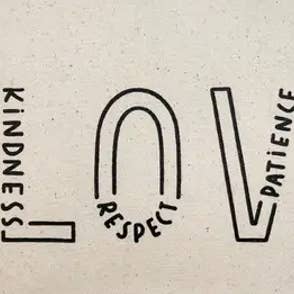 KiNDNESS
RESPECT
PATiENCE
LOV